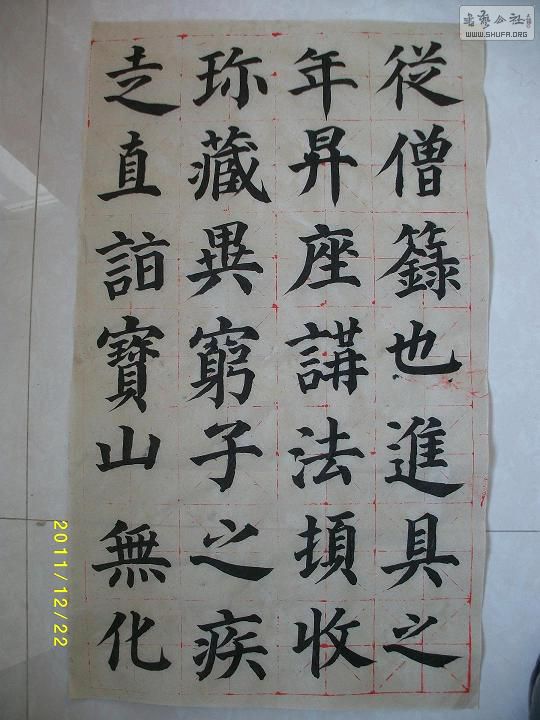 從僧籙也進具之
年昇座講法頓收
珎藏異窮子之疾
走直詣寶山無化
書法公社
WWW.SHUFA.ORG
2011/12/22